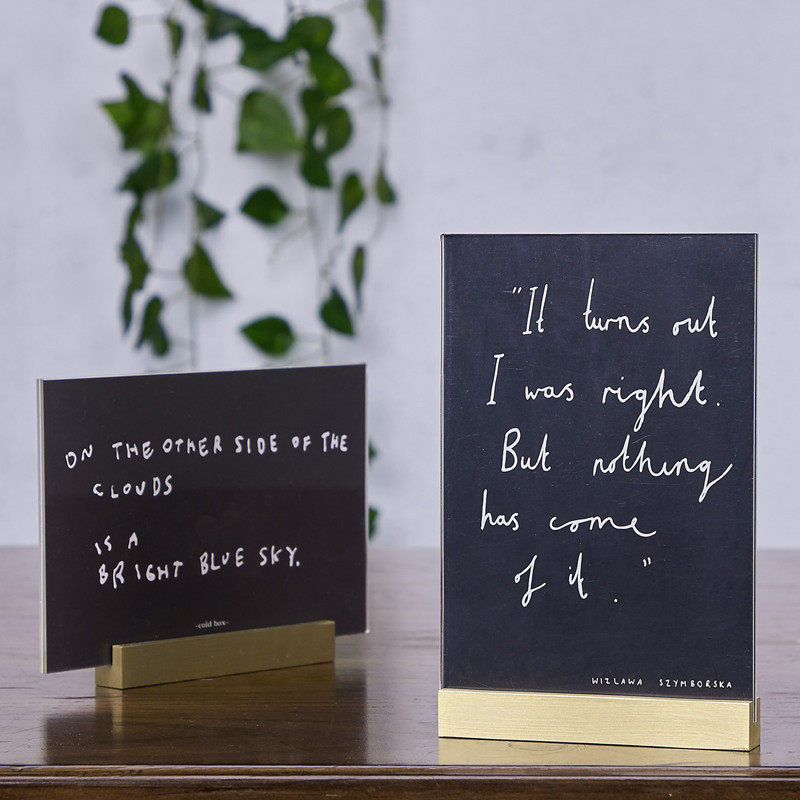 ON THE OTHER SIDE OF THE
CLOUDS
IS A
BRIGHT BLUE SKY.
-cold box-
"It turns out
I was right.
But nothing
has come
of it."
WIZLAWA SZYMBORSKA